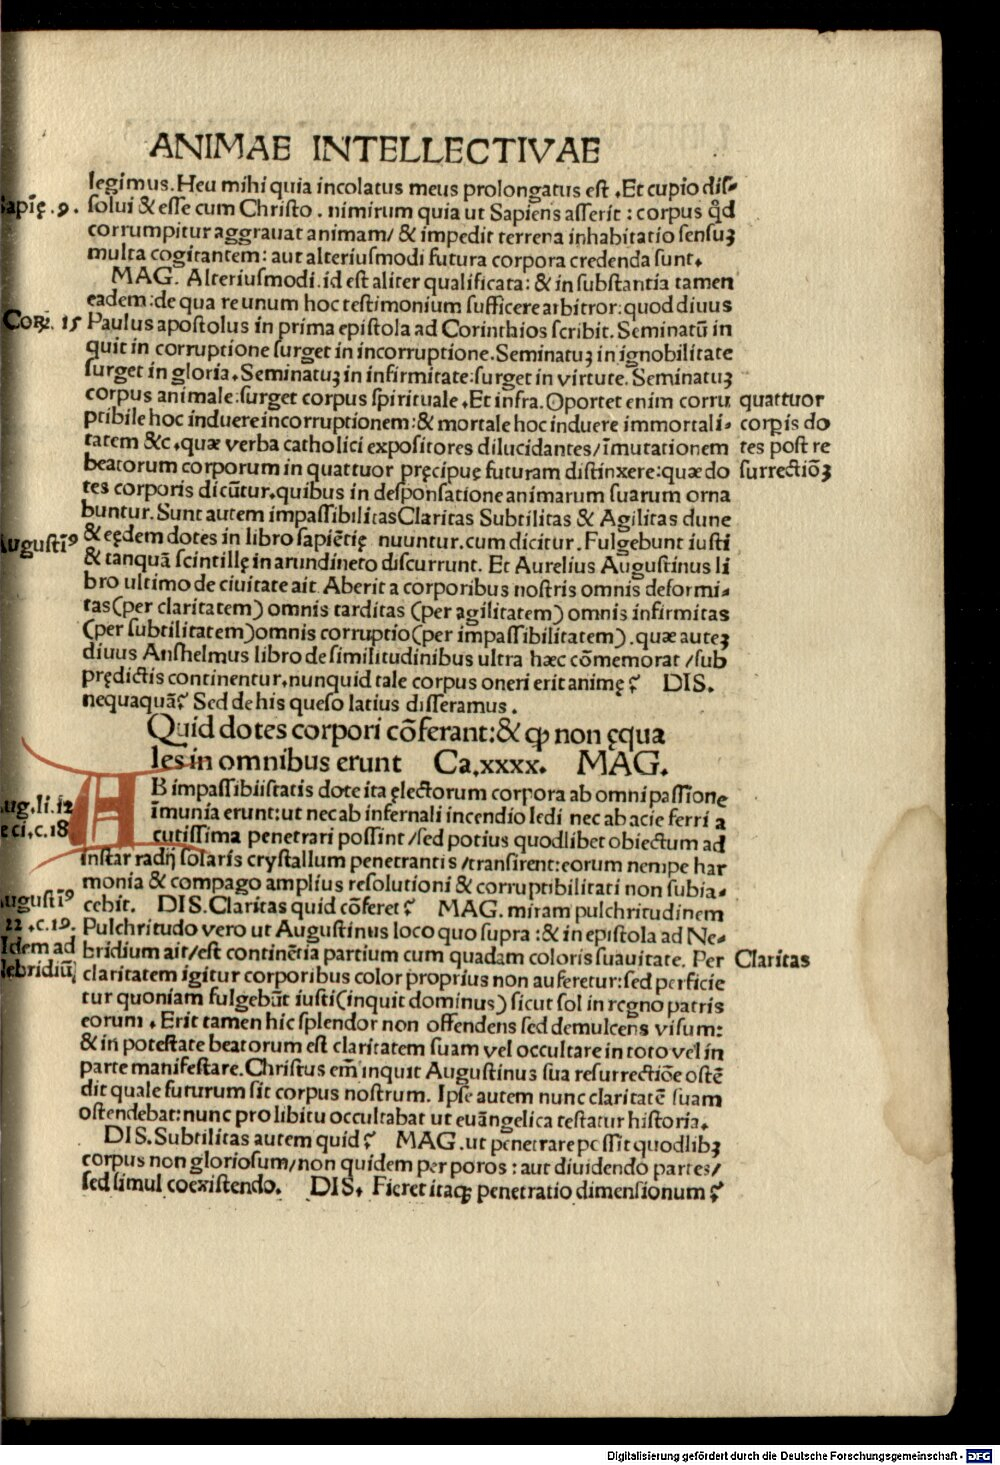 ANIMAE INTELLECTIVAE
legimus. Heu mihi quia incolatus meus prolongatus est. Et cupio dis-
sapię .9. solui & esse cum Christo. nimirum quia ut Sapiens asserit: corpus qđ
corrumpitur aggrauat animam/ & impedit terrena inhabitatio sensuꝫ
multa cogitantem: aut alteriusmodi futura corpora credenda sunt.
MAG. Alteriusmodi. id est aliter qualificata: & in substantia tamen
eadem: de qua re unum hoc testimonium sufficere arbitror: quod diuus
Corꝭ. 15 Paulus apostolus in prima epistola ad Corinthios scribit. Seminatū in
quit in corruptione surget in incorruptione. Seminatuꝫ in ignobilitate
surget in gloria. Seminatuꝫ in infirmitate: surget in virtute. Seminatuꝫ
corpus animale: surget corpus spirituale. Et infra. Oportet enim corru quattuor
ptibile hoc induere incorruptionem: & mortale hoc induere immortali- corpis do
tatem &c. quæ verba catholici expositores dilucidantes/ īmutationem tes post re
beatorum corporum in quattuor pręcipuę futuram distinxere: quæ do surrectiōꝫ
tes corporis dicūtur. quibus in desponsatione animarum suarum orna
buntur. Sunt autem impassibilitas Claritas Subtilitas & Agilitas dune
Augustīꝰ & eędem dotes in libro sapiētię nuuntur. cum dicitur. Fulgebunt iusti
& tanquā scintillę in arundineto discurrunt. Et Aurelius Augustinus li
bro ultimo de ciuitate ait. Aberit a corporibus nostris omnis deformi-
tas (per claritatem) omnis tarditas (per agilitatem) omnis infirmitas
(per subtilitatem) omnis corruptio (per impassibilitatem). quæ auteꝫ
diuus Anshelmus libro de similitudinibus ultra hæc cōmemorat / sub
prędictis continentur. nunquid tale corpus oneri erit animę? DIS.
nequaquā? Sed de his queso latius disseramus.
Quid dotes corpori cōferant: & ꝙ non ęqua
les in omnibus erunt Ca. xxxx. MAG.
AB impassibiistatis dote ita ęlectorum corpora ab omni passione
Aug. li. 12 īmunia erunt: ut nec ab infernali incendio ledi nec ab acie ferri a
e ci. c. 18 cutissima penetrari possint / sed potius quodlibet obiectum ad
instar radij solaris crystallum penetrantis / transirent: eorum nempe har
monia & compago amplius resolutioni & corruptibilitati non subia-
Augustīꝰ cebit. DIS. Claritas quid cōferet? MAG. miram pulchritudinem
22 .c. 19. Pulchritudo vero ut Augustinus loco quo supra: & in epistola ad Ne-
Idem ad bridium ait/ est continētia partium cum quadam coloris suauitate. Per Claritas
Nebridiū claritatem igitur corporibus color proprius non auferetur: sed perficie
tur quoniam fulgebūt iusti (inquit dominus) sicut sol in regno patris
eorum. Erit tamen hic splendor non offendens sed demulcens visum:
& in potestate beatorum est claritatem suam vel occultare in toto vel in
parte manifestare. Christus em̄ inquit Augustinus sua resurrectiōe ostē
dit quale futurum sit corpus nostrum. Ipse autem nunc claritatē suam
ostendebat: nunc pro libitu occultabat ut euāngelica testatur historia.
DIS. Subtilitas autem quid? MAG. ut penetrare possit quodlibꝫ
corpus non gloriosum/ non quidem per poros: aut diuidendo partes/
sed simul coexistendo. DIS. Fieret itaqꝫ penetratio dimensionum?
Digitalisierung gefördert durch die Deutsche Forschungsgemeinschaft - DFG